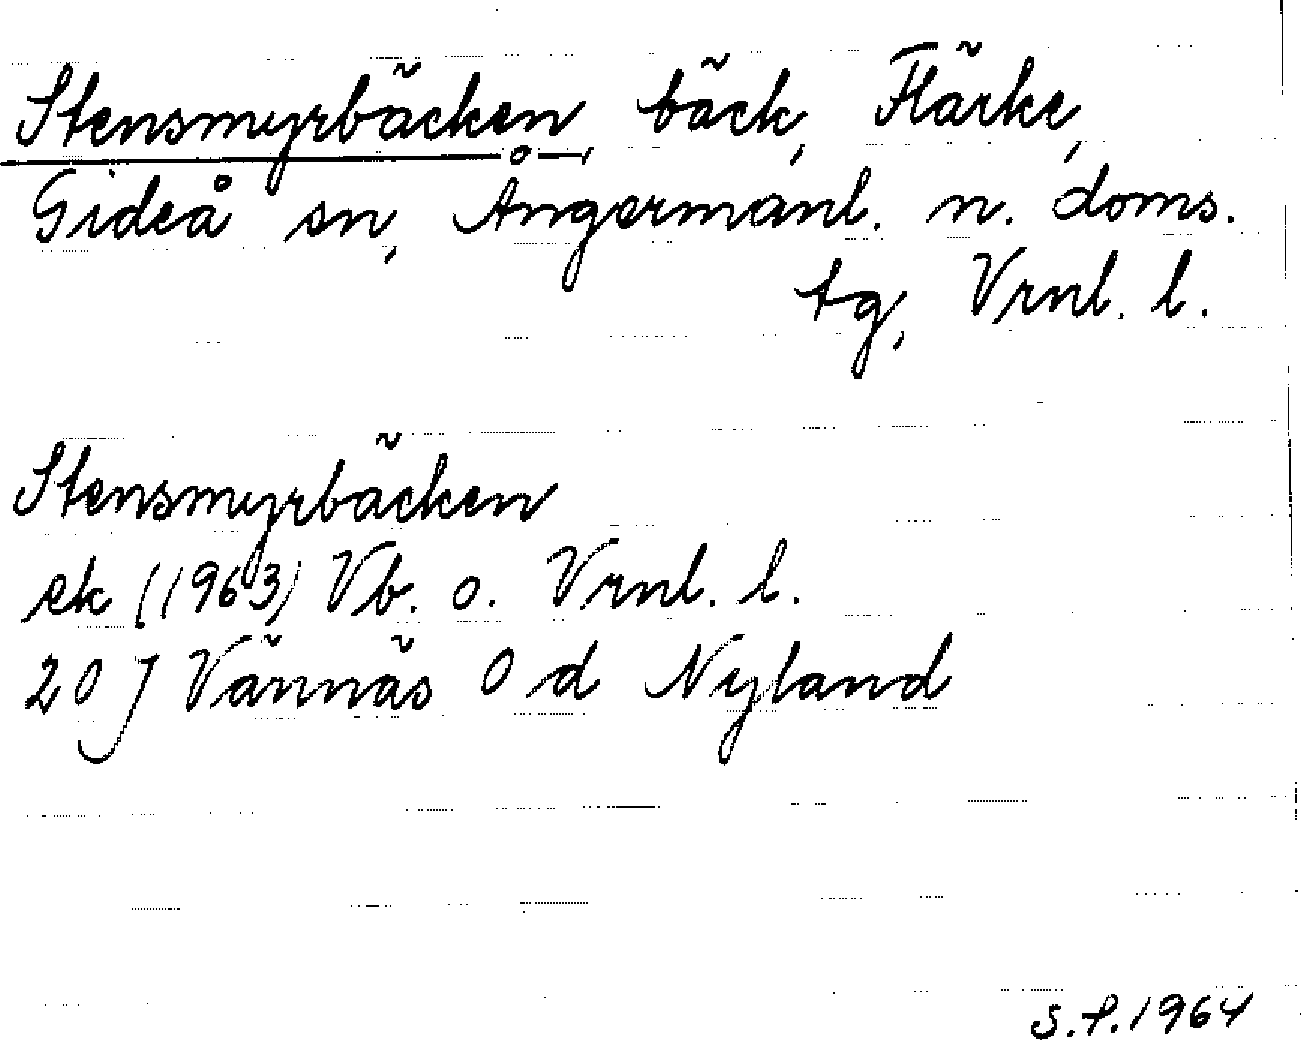 Stensmyrbäcken, bäck, Flärke,
Gideå sn, Ångermanl. n. doms.
tg, Vrnl. l.
Stensmyrbäcken
ek (1963) Vb. o. Vrnl. l.
20 J Vännäs 0 d Nyland
S.P. 1964